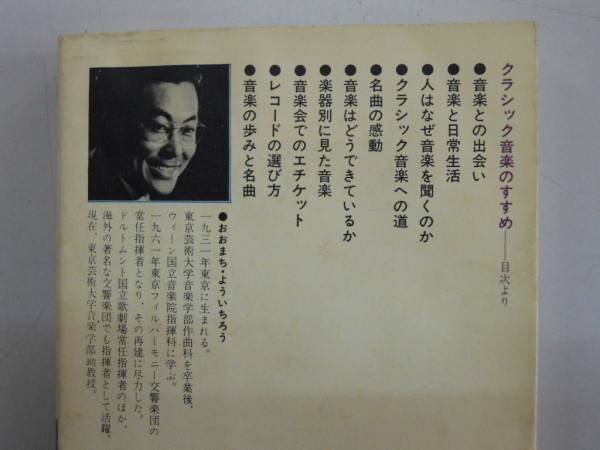 クラシック音楽のすすめ――目次より
●音楽との出会い
●音楽と日常生活
●人はなぜ音楽を聞くのか
●クラシック音楽への道
●名曲の感動
●音楽はどうできているか
●楽器別に見た音楽
●音楽会でのエチケット
●レコードの選び方
●音楽の歩みと名曲
●おおまち・よういちろう
一九三一年東京に生まれる。
東京芸術大学音楽学部作曲科を卒業後、
ウィーン国立音楽院指揮科に学ぶ。
一九六一年東京フィルハーモニー交響楽団の
常任指揮者となり、その再建に尽力した。
ドルトムント国立歌劇場常任指揮者のほか、
海外の著名な交響楽団でも指揮者として活躍。
現在、東京芸術大学音楽学部助教授。